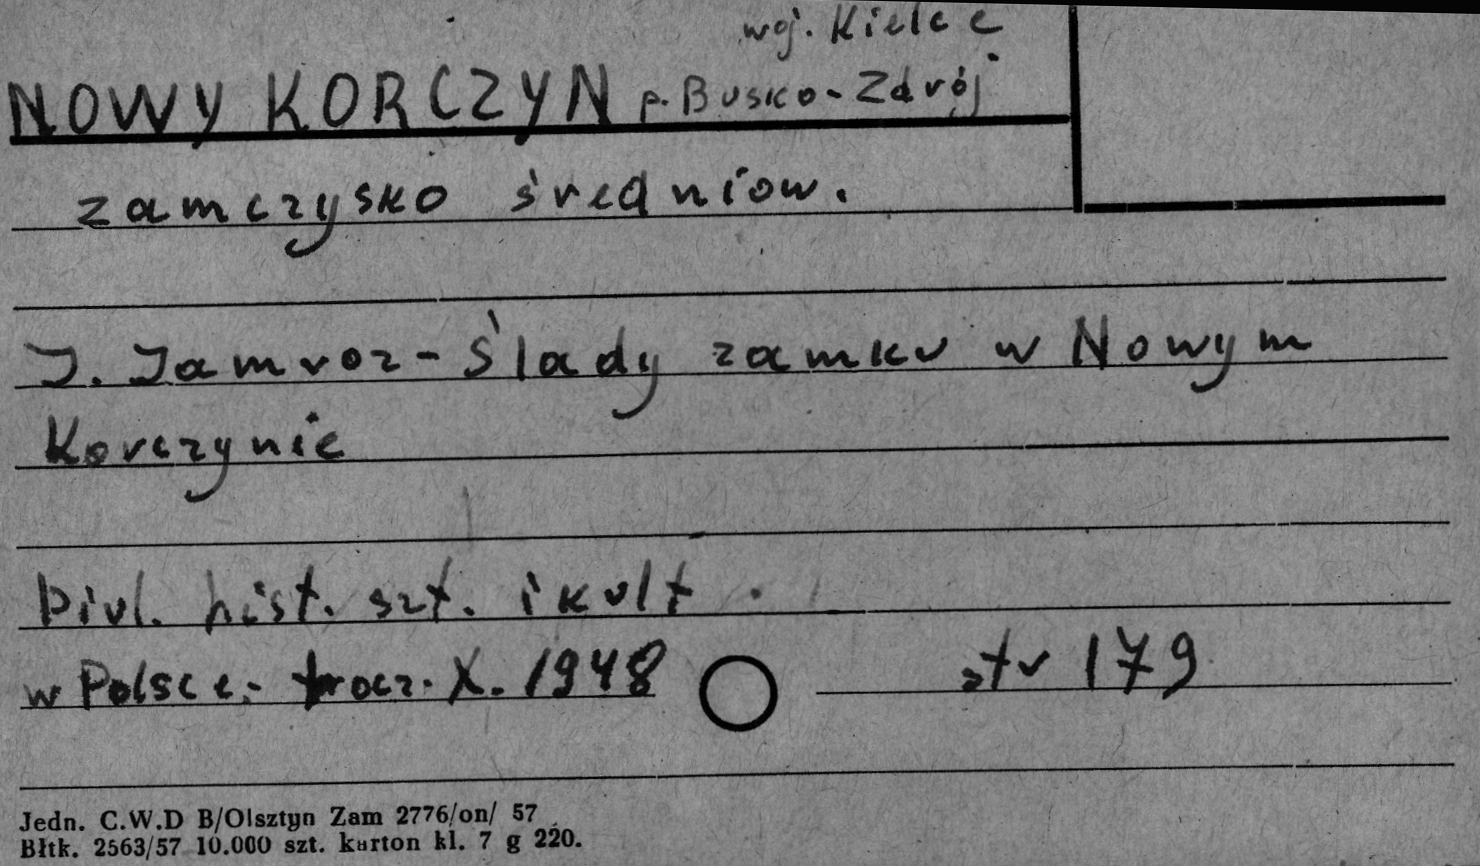 woj. Kielce
NOWY KORCZYN p. Busko-Zdrój
zamczysko średniow.
J. Jamroz - Ślady zamku w Nowym
Korczynie
Biul. hist. szt. i kult.
w Polsce - rocz. X. 1948 str 179
Jedn. C.W.D B/Olsztyn Zam 2776/on/ 57
Błtk. 2563/57 10.000 szt. karton kl. 7 g 220.